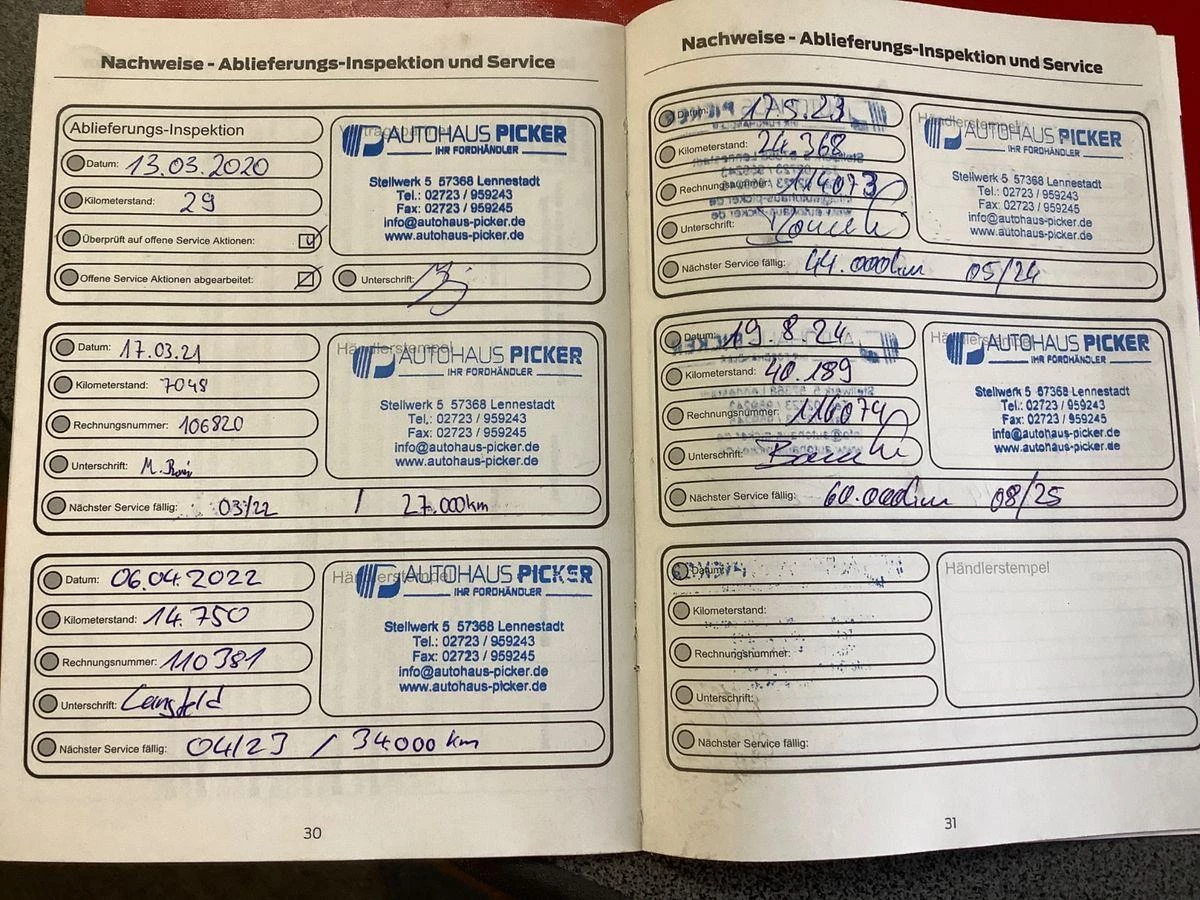 Nachweise - Ablieferungs-Inspektion und Service
Ablieferungs-Inspektion
Datum: 13.03.2020
Kilometerstand: 29
Überprüft auf offene Service Aktionen:
Offene Service Aktionen abgearbeitet:
AUTOHAUS PICKER
IHR FORDHÄNDLER
Stellwerk 5 57368 Lennestadt
Tel.: 02723 / 959243
Fax: 02723 / 959245
info@autohaus-picker.de
www.autohaus-picker.de
Unterschrift:
Datum: 17.03.21
Kilometerstand: 7048
Rechnungsnummer: 106820
Unterschrift:
Händlerstempel
AUTOHAUS PICKER
IHR FORDHÄNDLER
Stellwerk 5 57368 Lennestadt
Tel.: 02723 / 959243
Fax: 02723 / 959245
info@autohaus-picker.de
www.autohaus-picker.de
Nächster Service fällig: 03/22 / 27.000km
Datum: 06.04.2022
Kilometerstand: 14.750
Rechnungsnummer: 110381
Unterschrift:
Händlerstempel
AUTOHAUS PICKER
IHR FORDHÄNDLER
Stellwerk 5 57368 Lennestadt
Tel.: 02723 / 959243
Fax: 02723 / 959245
info@autohaus-picker.de
www.autohaus-picker.de
Nächster Service fällig: 04/23 / 34000 km
30
Nachweise - Ablieferungs-Inspektion und Service
Datum: 17.5.23
Kilometerstand: 24.368
Rechnungsnummer: 114073
Unterschrift:
Händlerstempel
AUTOHAUS PICKER
IHR FORDHÄNDLER
Stellwerk 5 57368 Lennestadt
Tel.: 02723 / 959243
Fax: 02723 / 959245
info@autohaus-picker.de
www.autohaus-picker.de
Nächster Service fällig: 44.000km 05/24
Datum: 19.8.24
Kilometerstand: 40.189
Rechnungsnummer: 116074
Unterschrift:
Händlerstempel
AUTOHAUS PICKER
IHR FORDHÄNDLER
Stellwerk 5 57368 Lennestadt
Tel.: 02723 / 959243
Fax: 02723 / 959245
info@autohaus-picker.de
www.autohaus-picker.de
Nächster Service fällig: 60.000km 08/25
Datum:
Kilometerstand:
Rechnungsnummer:
Unterschrift:
Händlerstempel
Nächster Service fällig:
31